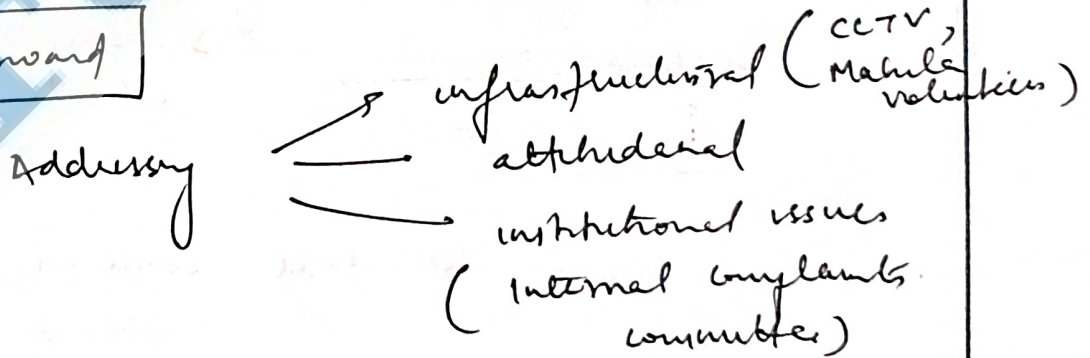 ward
Addressing
infrastructural (CCTV,
Mahila
volunteers)
attitudinal
institutional issues
(Internal complaints
committee)